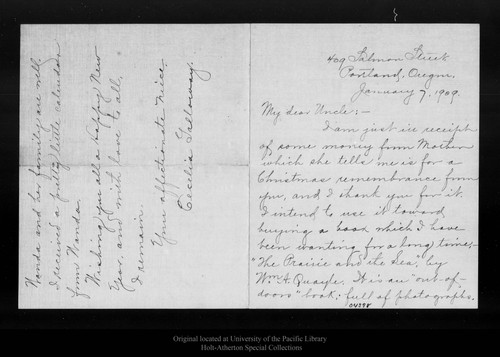 409 Salmon Street
Portland, Oregon.
January 7, 1909.
My dear Uncle:-
I am just in receipt
of some money from Mother
which she tells me is for a
Christmas remembrance from
you, and I thank you for it.
I intend to use it toward
buying a book which I have
been wanting for a long time,-
"The Prairie and the Sea" by
Wm. A. Quayle. It is an "out-of-
doors" book; full of photographs.
04298
Wanda and her family are well.
I received a pretty little calendar
from Wanda.
Wishing you all a happy New
Year, and with love to all,
I remain.
Your affectionate niece.
Cecelia Galloway.
Original located at University of the Pacific Library
Holt-Atherton Special Collections